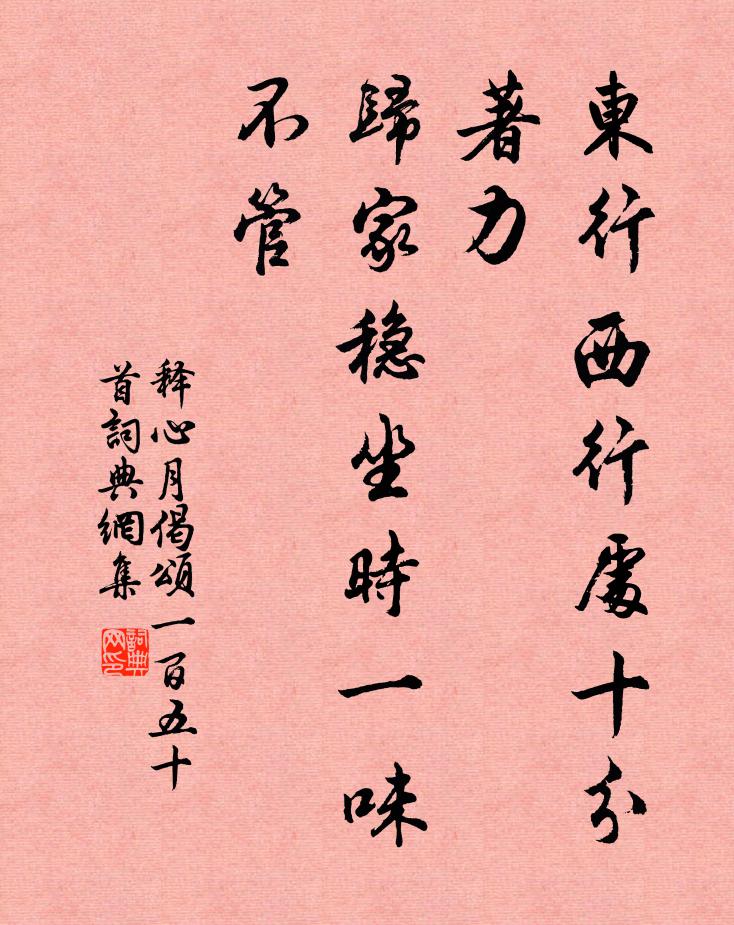 東行西行處十分
著力
歸家穩坐時一味
不管
释心月偈頌一百五十
首詞典網集
詞典网印